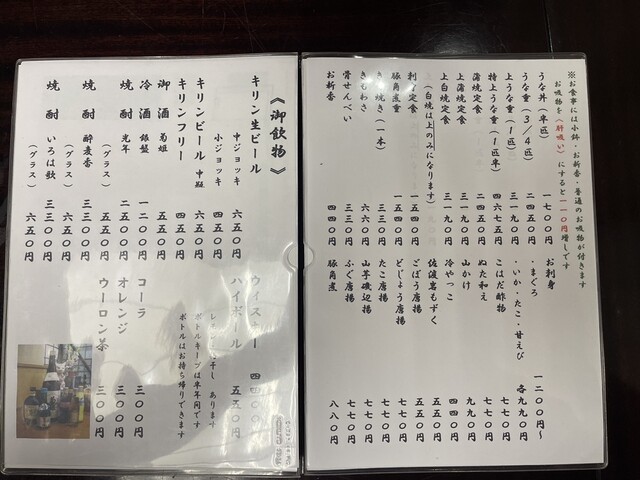 ※お食事には小鉢・お新香・普通のお吸物が付きます
お吸物を(肝吸い)にすると一一〇円増しです
うな丼(半匹) 一七〇〇円
うな重(3/4匹) 二四五〇円
上うな重(1匹) 三一九〇円
特上うな重(1匹半)
蒲焼定食 二四五〇円
上蒲焼定食 三一九〇円
上白焼定食 三一九〇円
(白焼は上のみになります)
刺身定食 一五四〇円
豚角煮重 一五四〇円
きも焼き(一本) 三三〇円
きもわさ 六六〇円
骨せんべい 三三〇円
お新香 四四〇円
お刺身
・まぐろ 一二〇〇円〜
・いか・たこ・甘えび 各九九〇円
こはだ酢物 七七〇円
ぬた和え 七七〇円
山かけ 九九〇円
冷やっこ 四四〇円
佐渡岩もずく 五五〇円
ごぼう唐揚 五五〇円
どじょう唐揚 七七〇円
たこ唐揚 七七〇円
山芋磯辺揚 七七〇円
ふぐ唐揚 七七〇円
豚角煮 八八〇円
《御飲物》
キリン生ビール 中ジョッキ 六五〇円
小ジョッキ 四五〇円
キリンビール 中瓶 六五〇円
キリンフリー 四四〇円
御酒 菊姫 五五〇円
冷酒 銀盤 一二〇〇円
焼酎 光年 二五〇〇円
(グラス) 五五〇円
焼酎 酔麦香 三三〇〇円
(グラス) 六五〇円
焼酎 いろは歌 三三〇〇円
(グラス) 六五〇円
ウィスキー 四四〇〇円
ハイボール 五五〇円
レモン 梅干し あります
ボトルキープは半年間です
ボトルはお持ち帰りできます
コーラ 三〇〇円
オレンジ 三〇〇円
ウーロン茶 三〇〇円